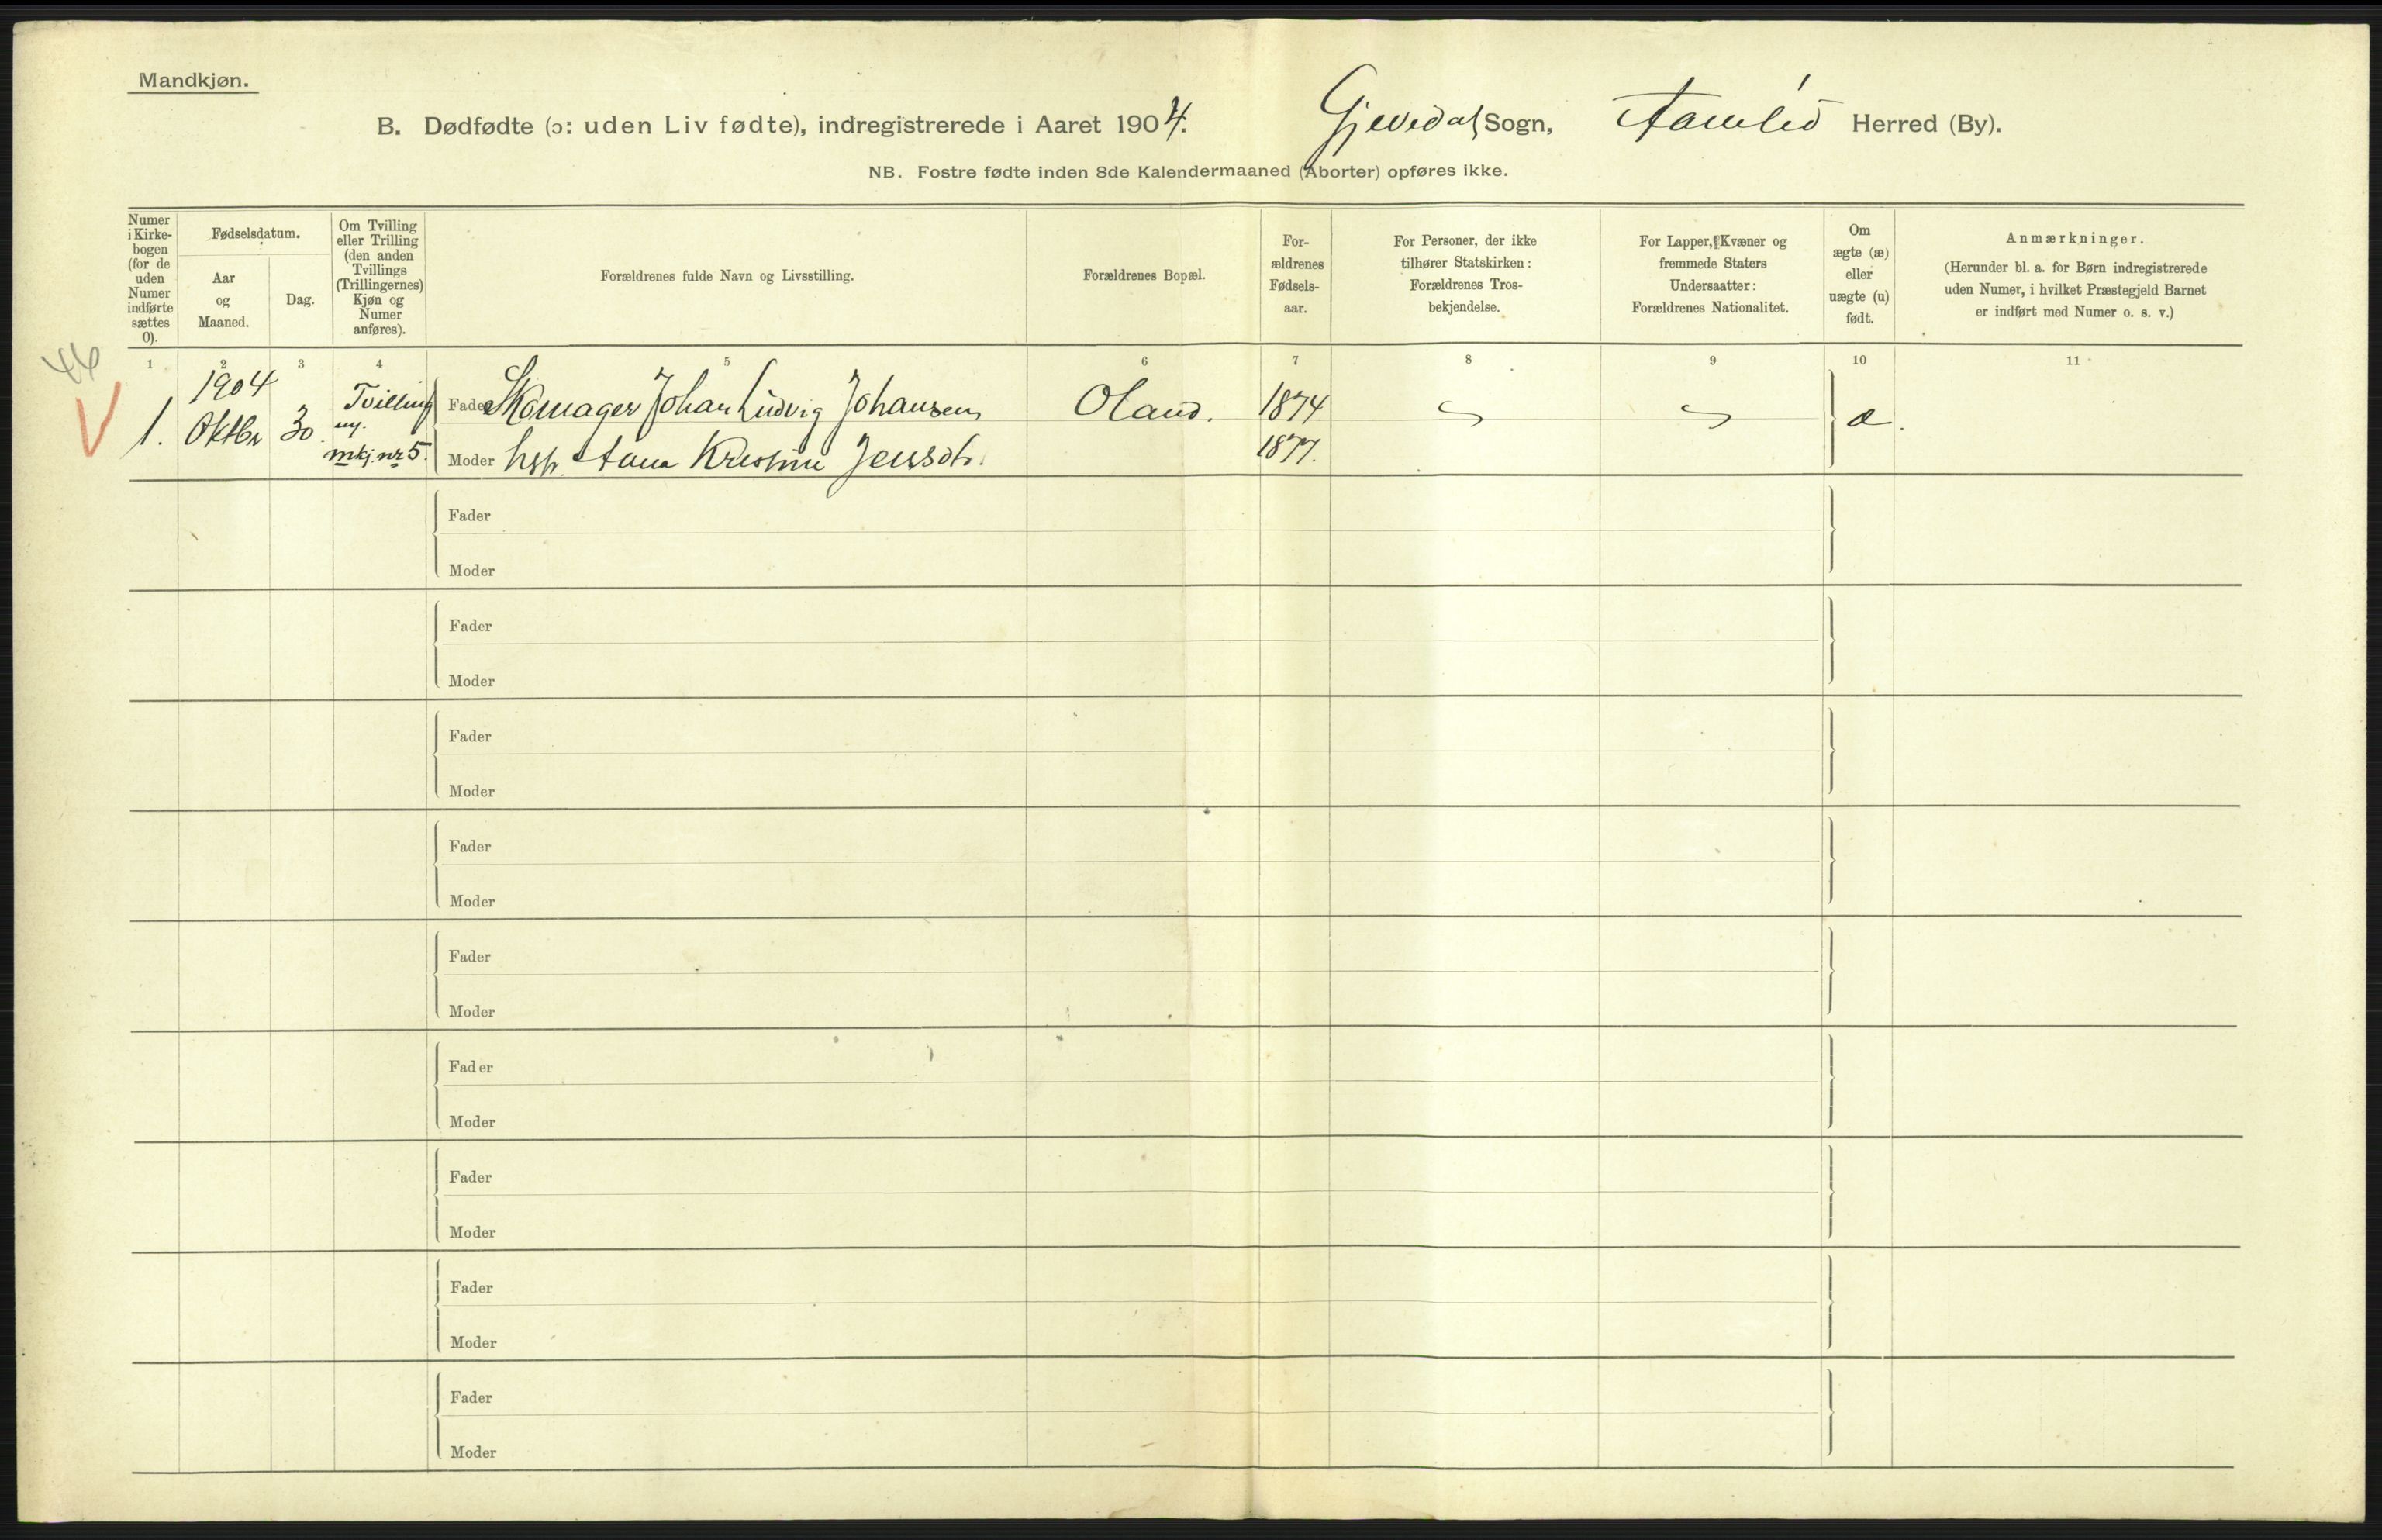 Mandkjøn.
B. Dødfødte (ɔ: uden Liv fødte), indregistrerede i Aaret 1904. Gjevedal Sogn, Aamlid Herred (By).
NB. Fostre fødte inden 8de Kalendermaaned (Aborter) opføres ikke.
Numer i Kirke-bogen (for de uden Numer indførte sættes 0).
Fødselsdatum.
Aar og Maaned.
Dag.
Om Tvilling eller Trilling (den anden Tvillings (Trillingernes) Kjøn og Numer anføres).
Forældrenes fulde Navn og Livsstilling.
Forældrenes Bopæl.
For-ældrenes Fødsels-aar.
For Personer, der ikke tilhører Statskirken: Forældrenes Tros-bekjendelse.
For Lapper, Kvæner og fremmede Staters Undersaatter: Forældrenes Nationalitet.
Om ægte (æ) eller uægte (u) født.
Anmærkninger.
(Herunder bl. a. for Børn indregistrerede uden Numer, i hvilket Præstegjeld Barnet er indført med Numer o. s. v.)
1 2 3 4 5 6 7 8 9 10 11
44
V
1. 1904 Oktbr 30. Tvilling
mkj. nr 5.
Fader Skomager Johan Ludvig Johansen Oland. 1874 æ.
Moder hstr. Anna Kristine Jensdtr. 1877.
Fader
Moder
Fader
Moder
Fader
Moder
Fader
Moder
Fader
Moder
Fader
Moder
Fader
Moder
Fader
Moder
Fader
Moder